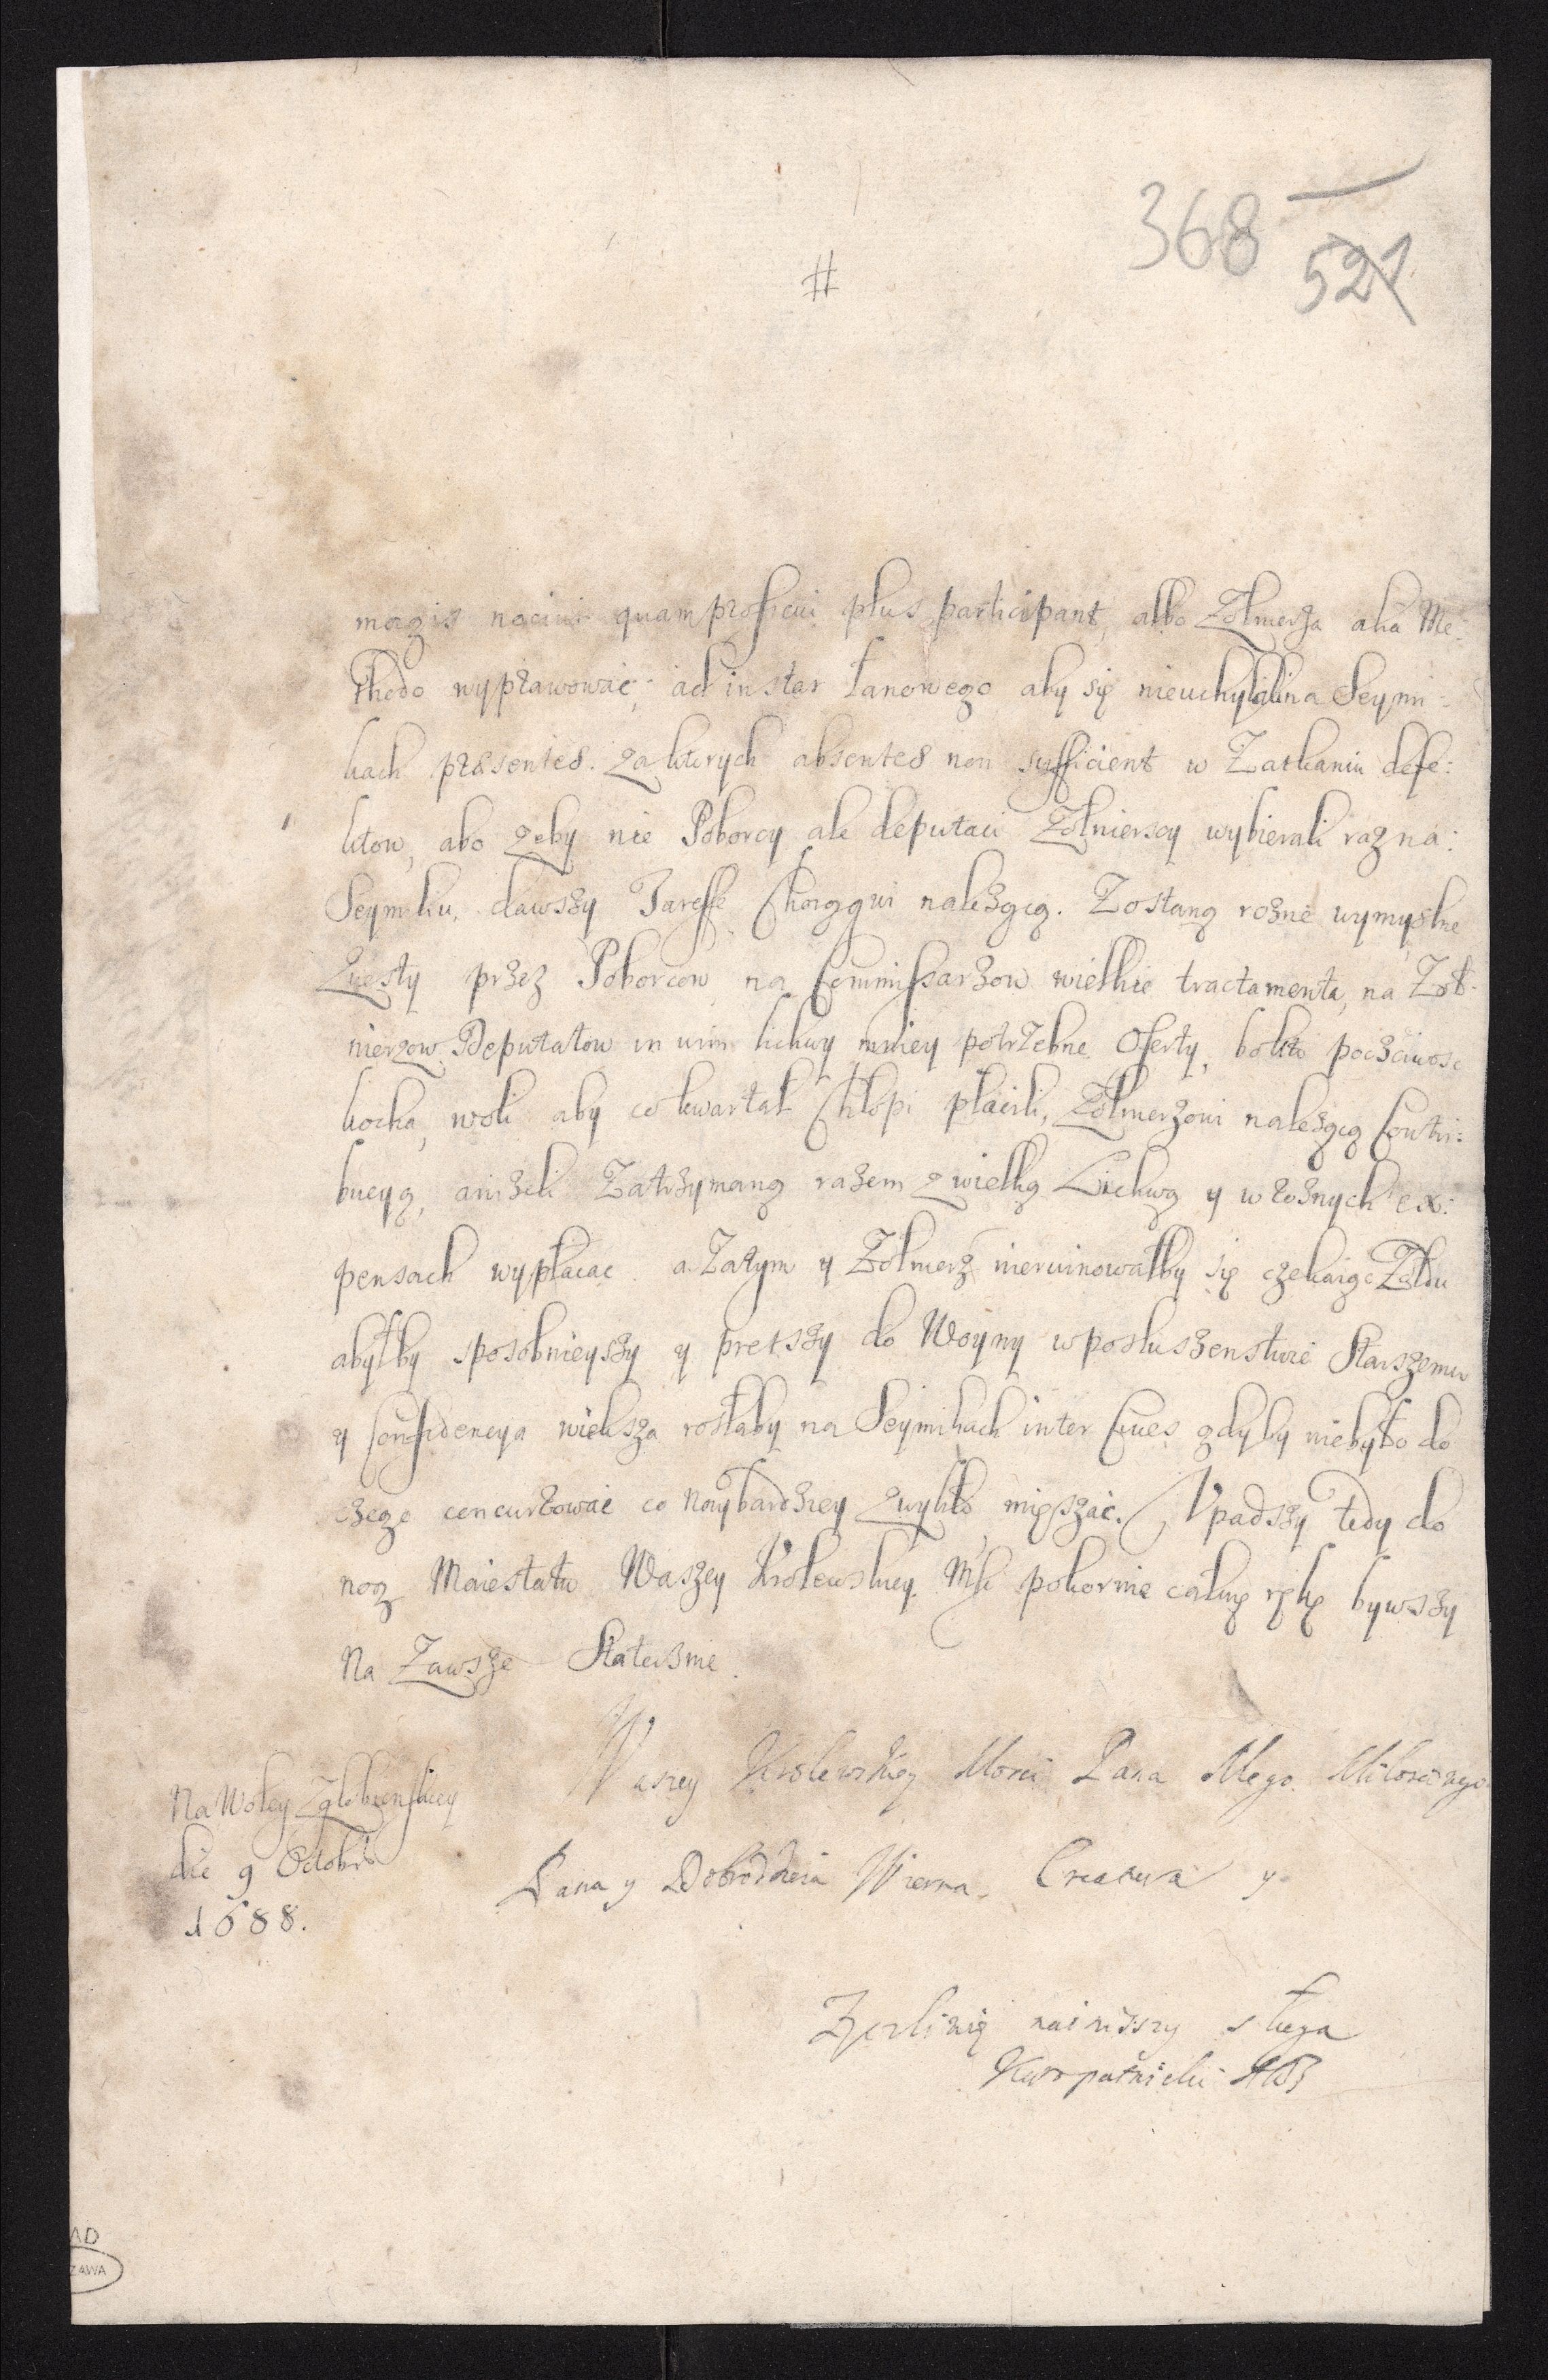 368
521
#
magis nociui quam proficui plus participant, albo Zołnierza alia Me:
thodo wyprawować, ad instar łanowego aby się nieuchylali na Seymi:
kach præsentes. za ktorych absentes non sufficient w Zatkaniu defe:
ktow, abo zeby nie Poborcy ale deputaci Zołnierscy wybierali raz na:
Seymiku, dawszy Tareffę Chorągwi nalezącą. Zostaną rozne wymyslne
Questy przez Poborcow na Commissarzow wielkie tractamenta, na Zoł:
nierzow Deputatow in vim lichwy mniey potrzebne Oferty, bo kto poczciwosc
kocha, woli aby co kwartał Chłopi płacili, Zołnierzowi nalezącą Contri:
bucyą, anizeli Zatrzymaną razem z wielką Lichwą y w roznych ex:
pensach wypłacac. a Zatym y Zołnierz nieruinowałby się czekaiąc Zołdu
abyłby sposobnieyszy y pretszy do Woyny w posłuszenstwie Starszemu
y Confidencya wieksza rosłaby na Seymikach inter Ciues gdyby niebyło do
czego concurrować co Naybardziey zwykło mięszać. Vpadszy tedy do
nog Maiestatu Waszey Krolewskiey Mści pokornie całuię rękę bywszy
Na Zawsze Statecznie.
Waszey Krolewskiey Mosci Pana Mego Miłosciwego
Pana y Dobrodzieia Wierna Creatura y
Na Woley Zgłobienskiey
die 9 Octobris
1688.
Zyczliwię nainiszszy sługa
Karpatnicki
AD
ZAWA